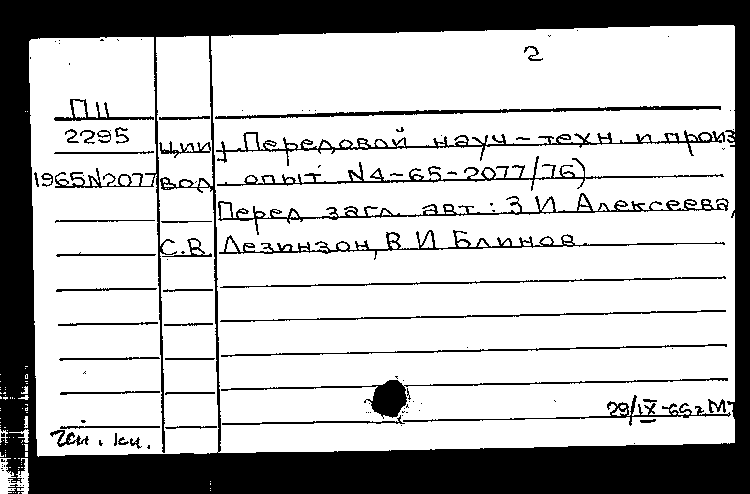 2
П 11
2295 ции; Передовой науч-техн. и произ
1965 N2077 вод. опыт N4-65-2077/76)
Перед загл. авт.: З И. Алексеева,
С.В. Лезинзон, В И Блинов.
29/IX-65г
кн.